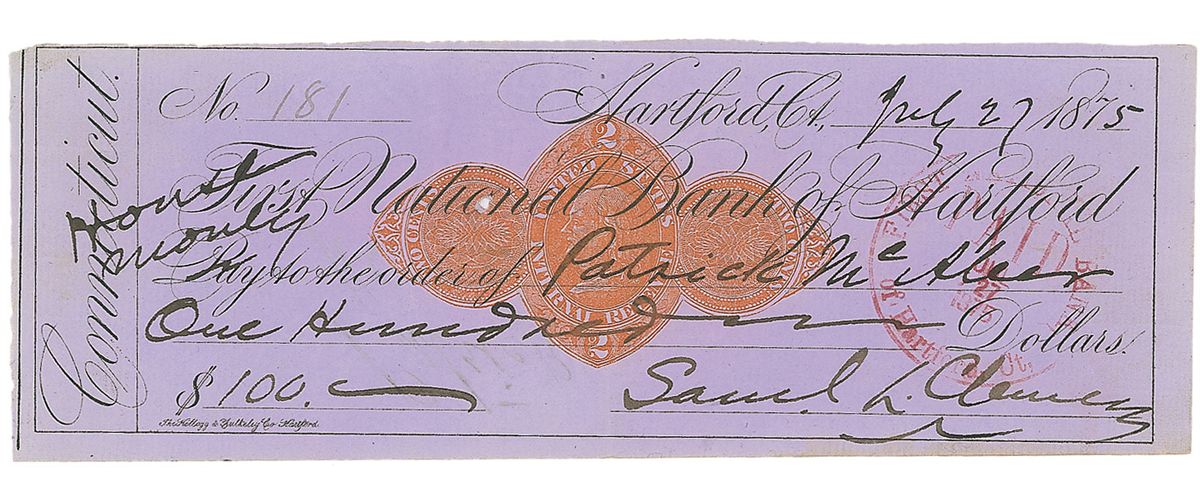 Connecticut.
No. 181 Hartford, Ct., July 27 1875
First National Bank of Hartford
Pay to the order of Patrick McAleer
One Hundred Dollars.
$100.
Saml. L. Clemens
The Kellogg & Bulkeley Co Hartford
money
2
UNITED STATES
INTERNAL RE
TWO CENTS
2
FIRST
PAID
BANK
27
1875
of Hartford, Ct.